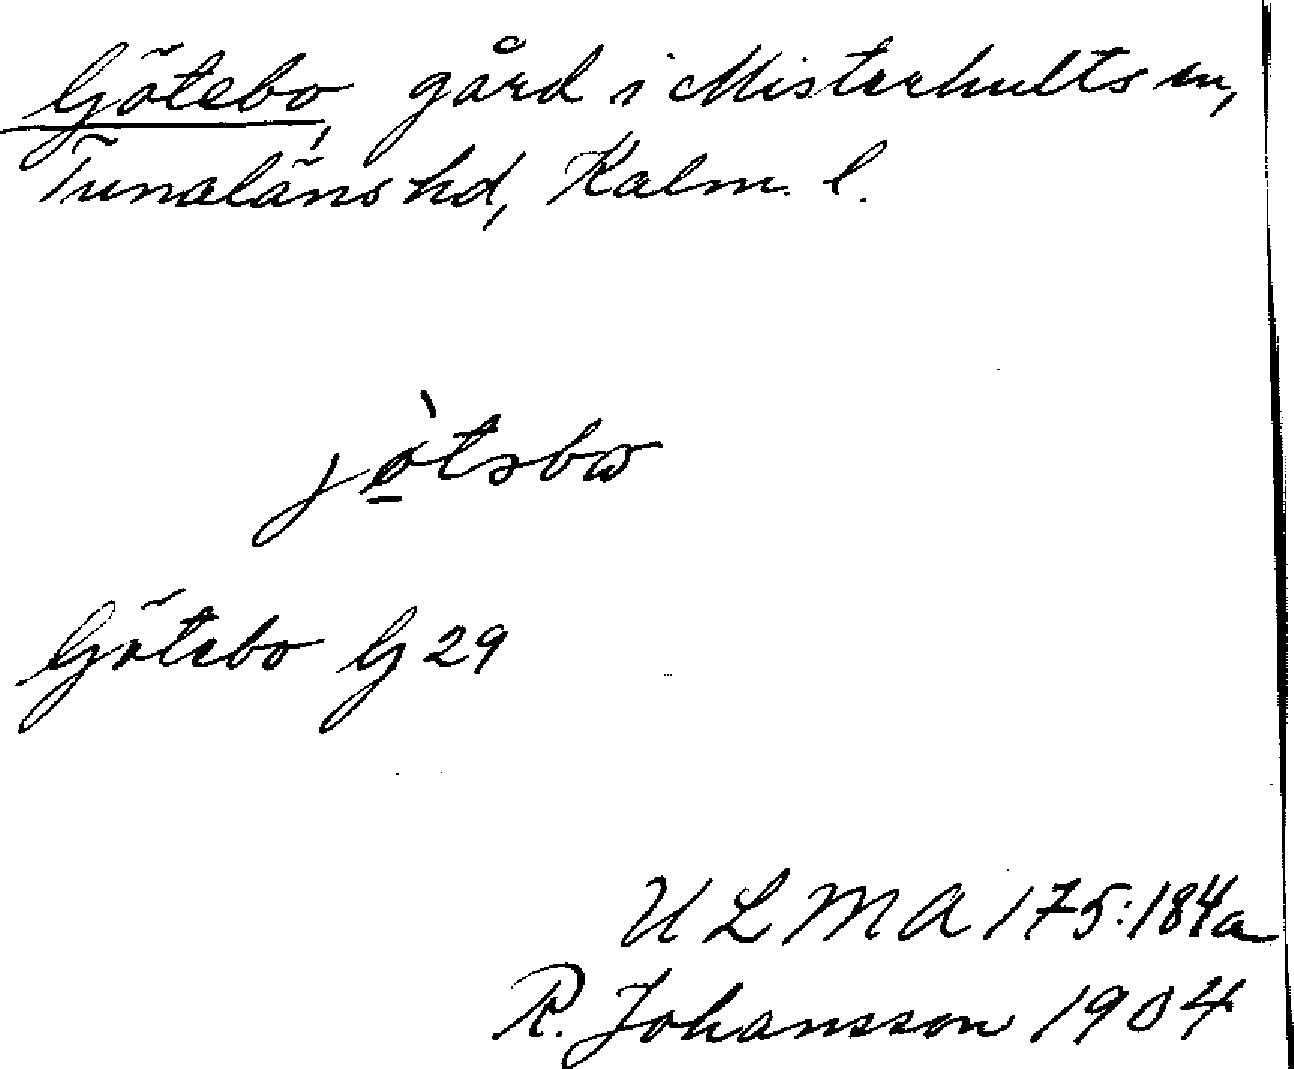 Götebo, gård i Misterhults sn,
Tunaläns hd, Kalm. l.
Götebo G 29
ULMA 175:184a
R. Johansson 1904